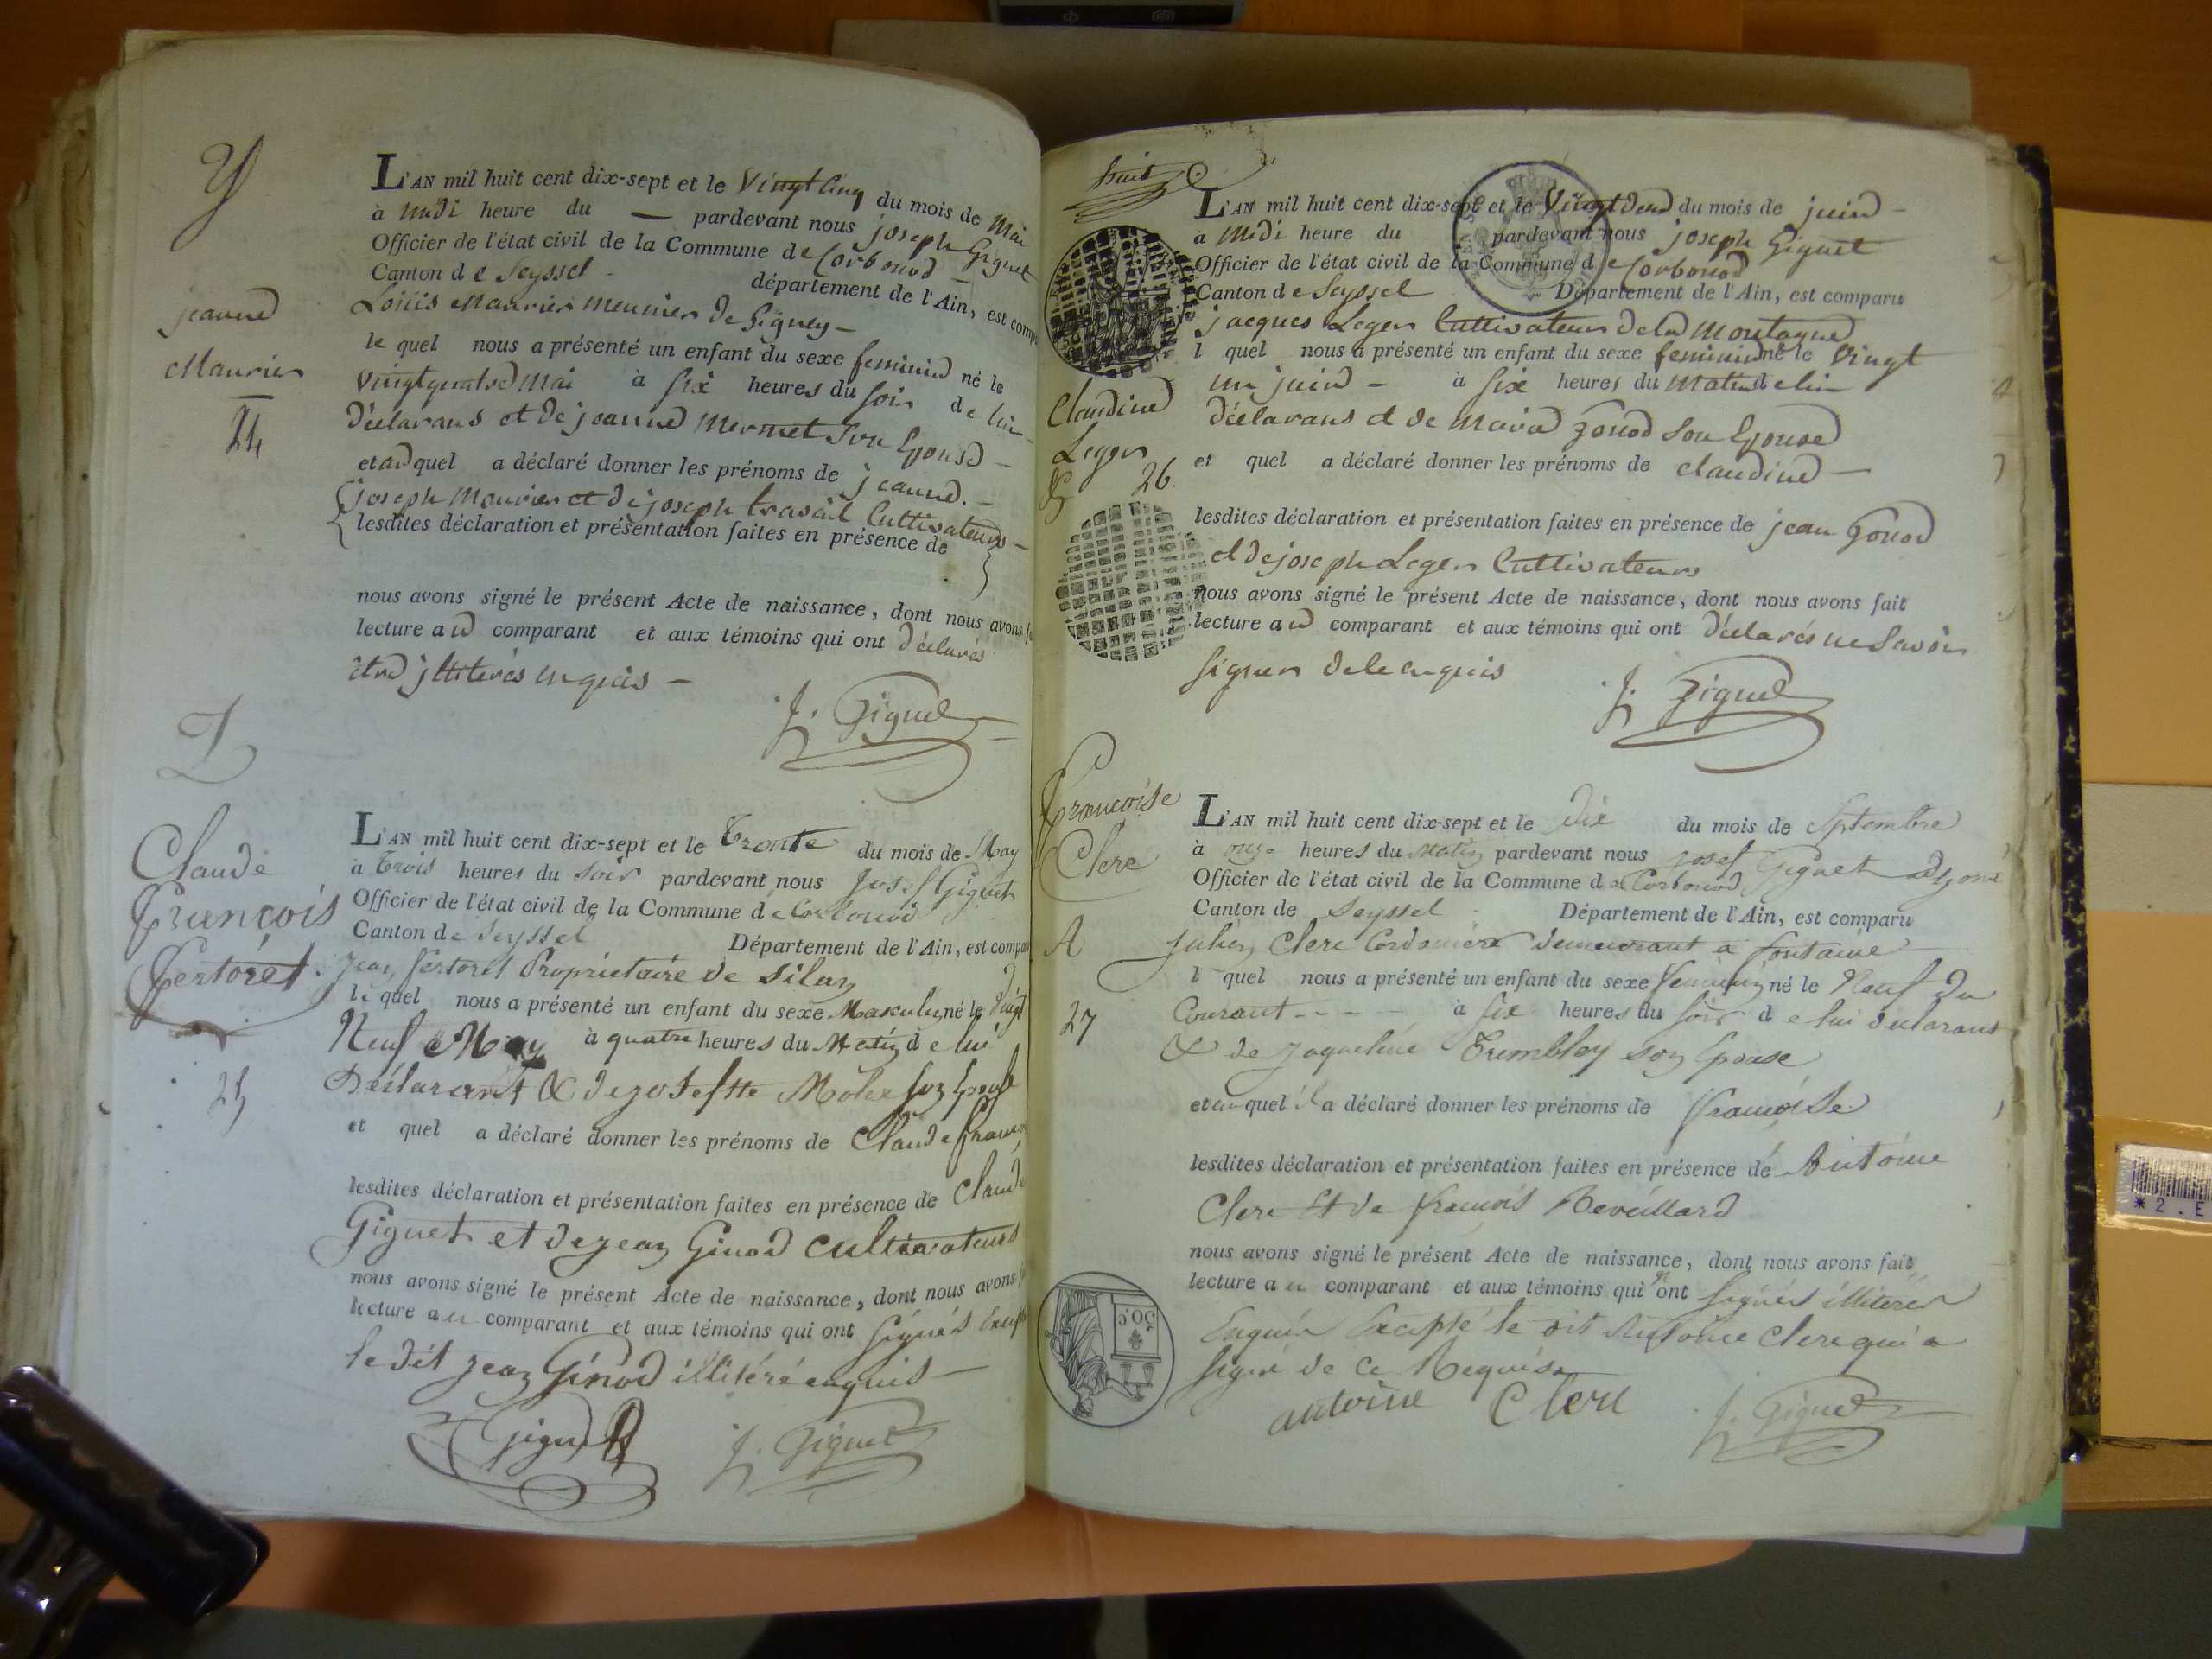 Y
L'AN mil huit cent dix-sept et le Vingt Cinq du mois de Mai
à midi heure du — pardevant nous joseph Giguet
Officier de l'état civil de la Commune de Corbonod
Canton de Seyssel - département de l'Ain, est comp
Louis Maurier meunier de Gigney -
jeanne
Maurier
24
le quel nous a présenté un enfant du sexe feminin né le
Vingt quatre Mai à six heures du soir de lui
déclarans et de jeanne Mermet Son Epouse -
et au quel a déclaré donner les prénoms de jeanne. -
joseph Maurier et de joseph travail Cultivateurs -
lesdites déclaration et présentation faites en présence de
nous avons signé le présent Acte de naissance, dont nous avons
lecture au comparant et aux témoins qui ont déclarés
être jlliterés enquis -
J. Giguet
Claude
François
Fertoret.
25
L'AN mil huit cent dix-sept et le Trente du mois de May
à Trois heures du Soir pardevant nous Josef Giguet
Officier de l'état civil de la Commune de Corbonod
Canton de Seyssel Département de l'Ain, est compa
Jean fertoret Proprietaire de Silan
le quel nous a présenté un enfant du sexe Masculin né le Vingt
Neuf May à quatre heures du Matin de lui
Déclarant & de josephtte Molex son Epouse
et quel a déclaré donner les prénoms de Claude franço
lesdites déclaration et présentation faites en présence de Claude
Giguet et de jean Ginod cultivateurs
nous avons signé le présent Acte de naissance, dont nous avons
lecture au comparant et aux témoins qui ont signés
le dit jean Ginod illitéré enquis -
Giguet J. Giguet
huit
L'AN mil huit cent dix-sept et le Vingt deux du mois de juin -
à Midi heure du pardevant nous joseph Giguet
Officier de l'état civil de la Commune de Corbonod
Canton de Seyssel Département de l'Ain, est comparu
jacques Leger Cultivateur de la Montagne
l quel nous a présenté un enfant du sexe feminin né le Vingt
un juin - à six heures du Matin de lui
Claudine
Leger
26.
déclarans et de Marie Gonod Son Epouse
et quel a déclaré donner les prénoms de claudine -
lesdites déclaration et présentation faites en présence de jean Gonod
et de joseph Leger Cultivateurs
nous avons signé le présent Acte de naissance, dont nous avons fait
lecture au comparant et aux témoins qui ont déclarés ne Savoir
signer de ce enquis
J. Giguet
Françoise
Clerc
A
27
L'AN mil huit cent dix-sept et le Dix du mois de Septembre
à onze heures du Matin pardevant nous Josef Giguet adjoint
Officier de l'état civil de la Commune de Corbonod
Canton de Seyssel Département de l'Ain, est comparu
Julien Clerc Cordonier demeurant a fontaine
l quel nous a présenté un enfant du sexe feminin né le Neuf du
Courant - - - - à six heures du soir de lui déclarant
& de Jaqueline Trembley son Epouse
et au quel il a déclaré donner les prénoms de françoise
lesdites déclaration et présentation faites en présence de Antoine
Clerc Et de françois Reveillard
nous avons signé le présent Acte de naissance, dont nous avons fait
lecture au comparant et aux témoins qui n'ont signés illiterés
Enquis Excepté le dit Antoine Clerc qui a
signé de ce Requis
antoine Clerc J. Giguet
50 C.
*2.E